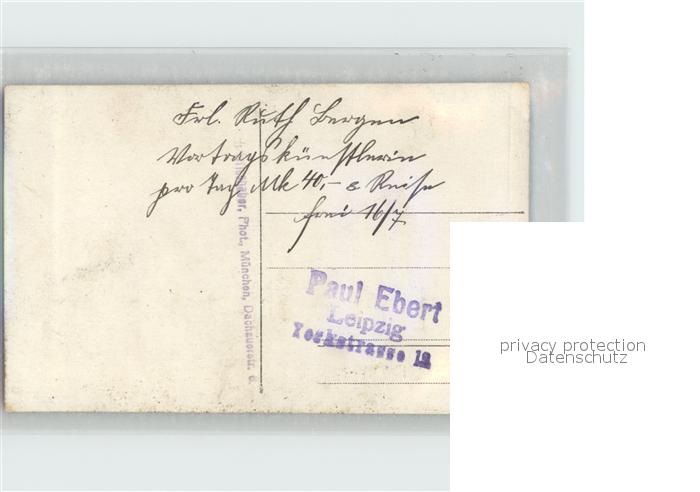 Frl. Ruth Bergen
Vortragskünstlerin
pro Tag Mk 40,- & Reise
frei 16/7
Phot., München, Dachauerstr. 6.
Paul Ebert
Leipzig
Yorkstrasse 12
privacy protection
Datenschutz